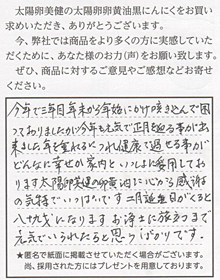 太陽卵美健の太陽卵卵黄油黒にんにくをお買い
求めいただき、ありがとうございます。
今、弊社では商品をより多くの方に実感していた
だくために、あなた様のお力（声）をお願い致します。
ぜひ、商品に対するご意見やご感想などお寄せ
ください。
今年で三年目年末から年始にかけ咳き込んで困
っておりましたが今年も元気で正月迎る事が出
来ました年を重ねるにつれ健康で過せる事が
どんなに幸せか家内といつもに愛用してお
ります太陽健美の卵黄油に心から感謝
の気持でいっぱいです二月誕生日がくると
八十九歳になります お浄土に旅立つまで
元気でいられたらと思うばかりです。
★匿名で紙面に掲載させていただく場合がございます。
尚、採用された方にはプレゼントを用意しております。